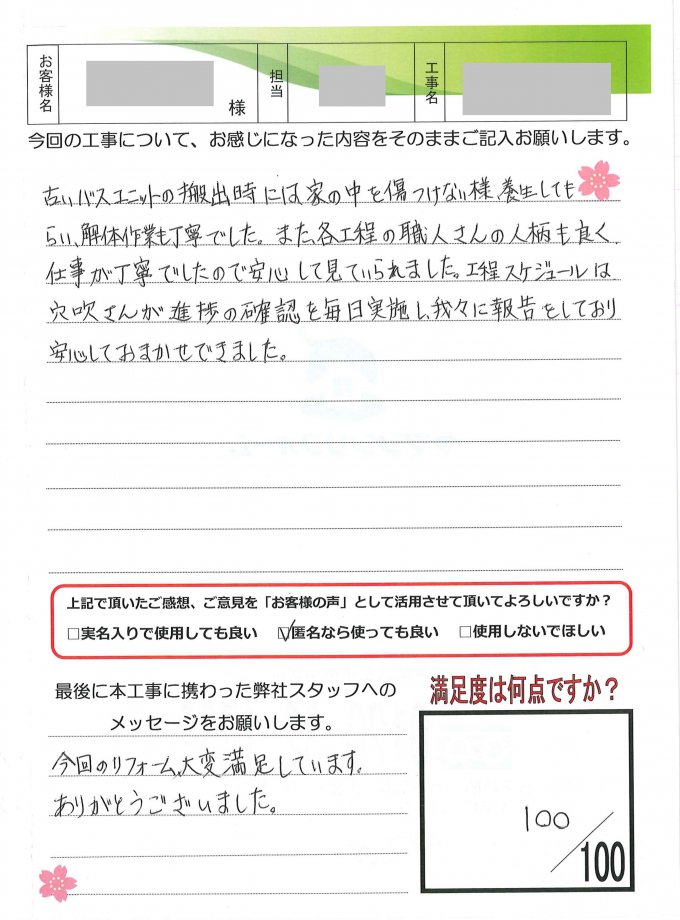 お客様名
様
担当
工事名
今回の工事について、お感じになった内容をそのままご記入お願いします。
古いバスユニットの搬出時には家の中を傷つけない様、養生しても
らい、解体作業も丁寧でした。また、各工程の職人さんの人柄も良く、
仕事が丁寧でしたので安心して見ていられました。工程スケジュールは
穴吹さんが進捗の確認を毎日実施し、我々に報告をしており
安心しておまかせできました。
上記で頂いたご感想、ご意見を「お客様の声」として活用させて頂いてよろしいですか？
□実名入りで使用しても良い ☑匿名なら使っても良い □使用しないでほしい
最後に本工事に携わった弊社スタッフへの
メッセージをお願いします。
今回のリフォーム、大変満足しています。
ありがとうございました。
満足度は何点ですか？
100
/100